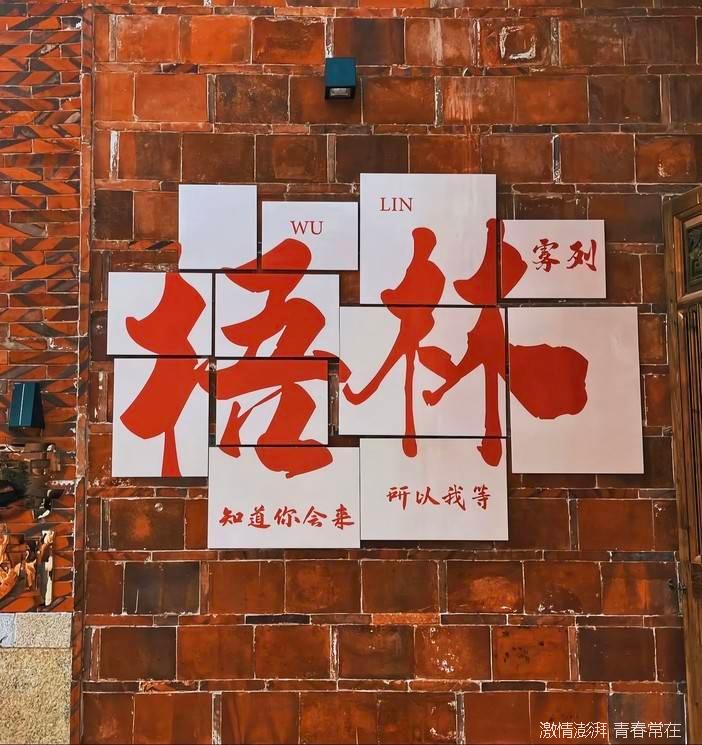 WU
LIN
列
梧林
知道你会来
所以我等
激情澎湃 青春常在